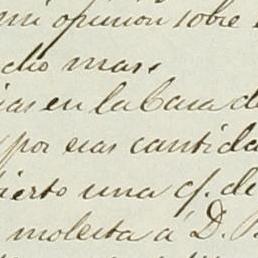 mi opinion sobre
cho mas.
ias en la Casa de
por esas cantida
bierto una q. de
molecta á D.